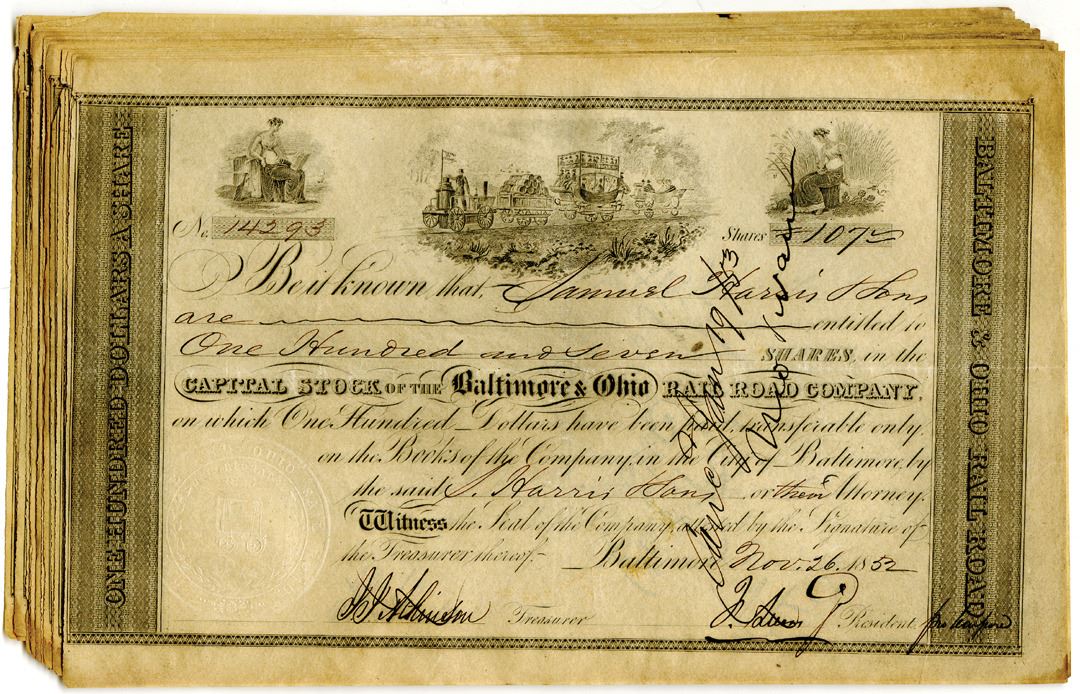 ONE HUNDRED DOLLARS A SHARE
No. 14293
Shares 107
Be it known, that, Samuel Harris & Sons
are entitled to
One Hundred and Seven SHARES, in the
CAPITAL STOCK OF THE Baltimore & Ohio RAIL ROAD COMPANY,
on which One Hundred Dollars have been paid, transferable only
on the Books of the Company, in the City of Baltimore, by
the said S. Harris & Sons or their Attorney.
Witness the Seal of the Company, attested by the Signature of
the Treasurer thereof. Baltimore Nov. 26. 1852
J. J. Atkinson Treasurer
President pro tempore
BALTIMORE & OHIO RAIL ROAD